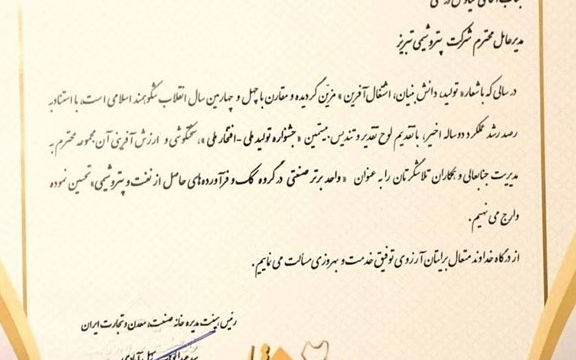 جناب آقای سیاوش درفشی
مدیرعامل محترم شرکت پتروشیمی تبریز
در سالی که با شعار « تولید، دانش بنیان، اشتغال آفرین » مزین گردیده و مقارن با چهل و چهارمین سال انقلاب شکوهمند اسلامی است، با استناد به
رصد رشد عملکرد دو ساله اخیر، با تقدیم لوح تقدیر و تندیس بیستمین « جشنواره تولید ملی - افتخار ملی »، سختکوشی و ارزش آفرینی آن مجموعه محترم به
مدیریت جنابعالی و همکاران تلاشگرتان را به عنوان « واحد برتر صنعتی در گروه کک و فرآورده‌های حاصل از نفت و پتروشیمی» تحسین نموده
و ارج می نهیم.
از درگاه خداوند متعال برایتان آرزوی توفیق خدمت و بهروزی مسالت می نماییم.
رئیس هیئت مدیره خانه صنعت، معدن و تجارت ایران